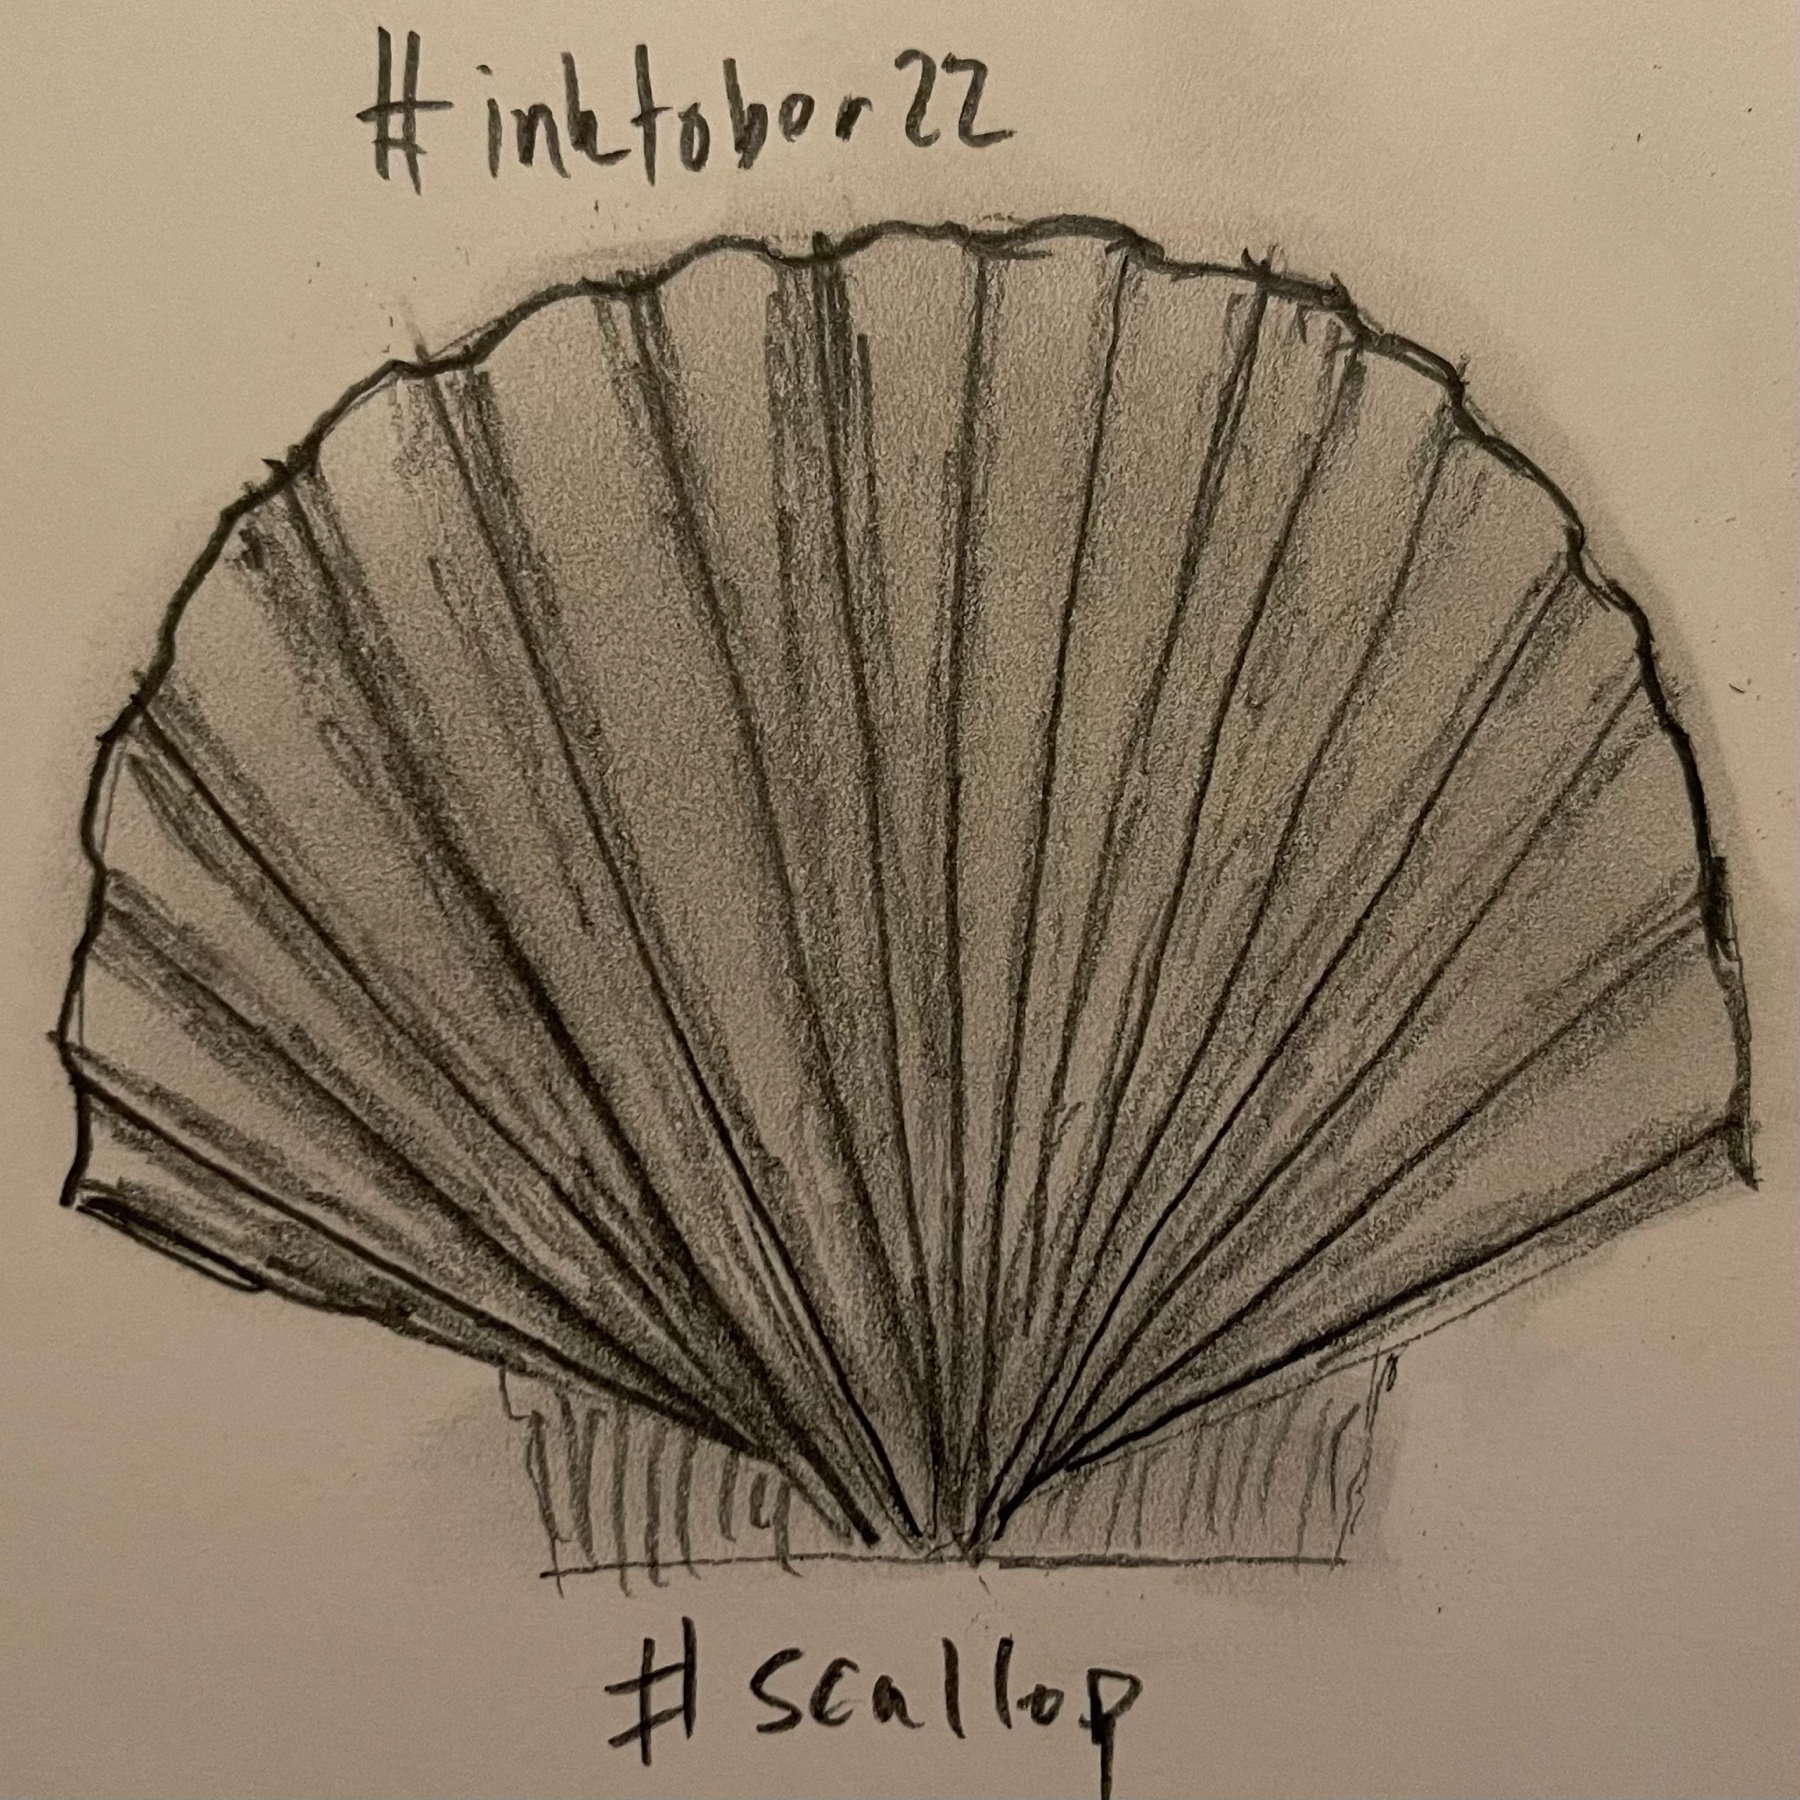 #inktober22
#scallop